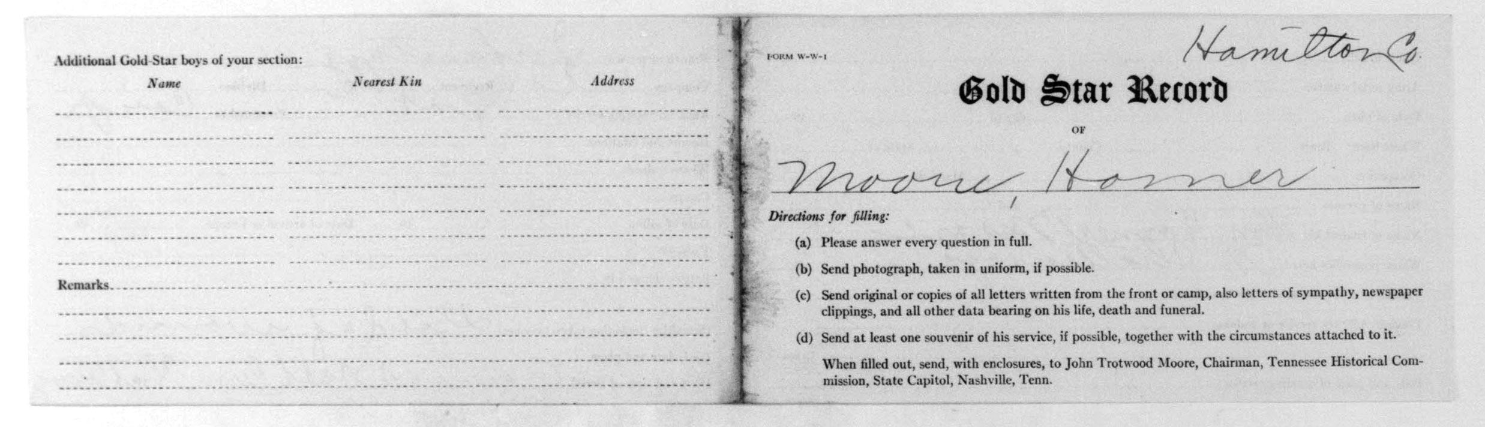 Additional Gold-Star boys of your section:
Name Nearest Kin Address
Remarks
FORM W-W-1
Hamilton Co
Gold Star Record
OF
Moore, Homer
Directions for filling:
(a) Please answer every question in full.
(b) Send photograph, taken in uniform, if possible.
(c) Send original or copies of all letters written from the front or camp, also letters of sympathy, newspaper
clippings, and all other data bearing on his life, death and funeral.
(d) Send at least one souvenir of his service, if possible, together with the circumstances attached to it.
When filled out, send, with enclosures, to John Trotwood Moore, Chairman, Tennessee Historical Com-
mission, State Capitol, Nashville, Tenn.